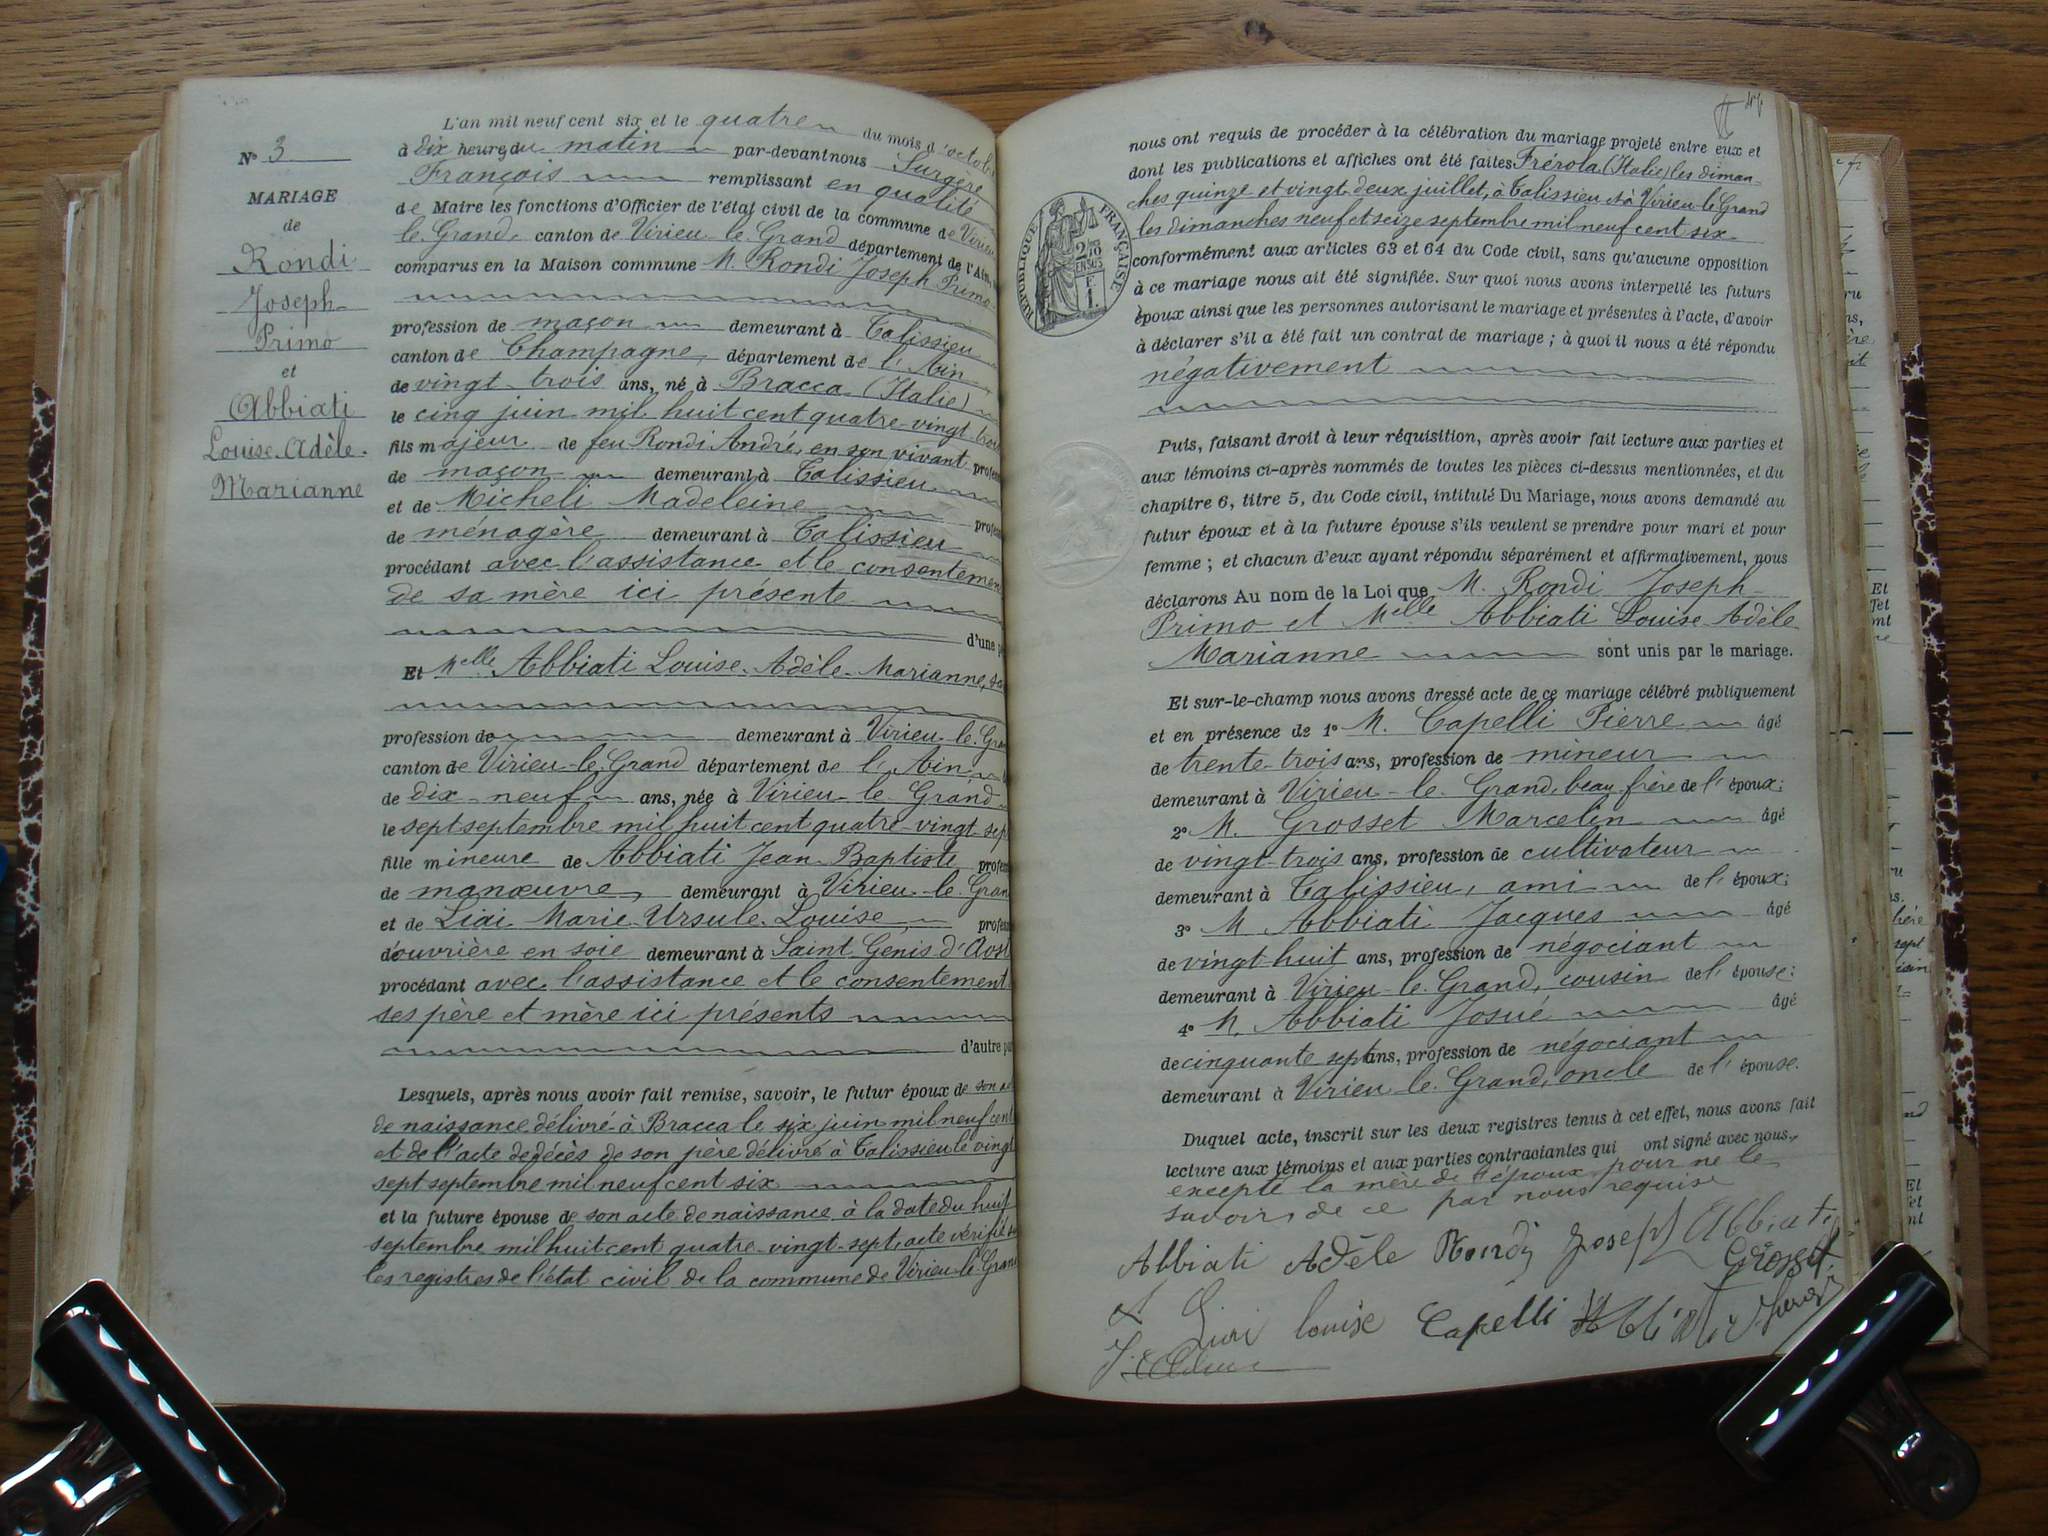 N° 3
MARIAGE
de
Rondi
Joseph
Primo
et
Abbiati
Louise-Adèle-
Marianne
L'an mil neuf cent six et le quatre du mois d'octob
à dix heures du matin par-devant nous Surgère
François remplissant en qualité
de Maire les fonctions d'Officier de l'état civil de la commune de Virieu
le-Grand, canton de Virieu-le-Grand département de l'Ain,
comparus en la Maison commune M. Rondi Joseph Primo
profession de maçon demeurant à Talissieu
canton de Champagne, département de l'Ain
de vingt-trois ans, né à Bracca (Italie)
le cinq juin mil huit cent quatre-vingt-trois
fils majeur de feu Rondi André, en son vivant profes
de maçon demeurant à Talissieu
et de Micheli Madeleine profes
de ménagère demeurant à Talissieu
procédant avec l'assistance et le consentemen
de sa mère ici présente
d'une p
Et Melle Abbiati Louise-Adèle-Marianne, sa
profession de demeurant à Virieu-le-Gra
canton de Virieu-le-Grand département de l'Ain,
de dix-neuf ans, née à Virieu-le-Grand
le sept septembre mil huit cent quatre-vingt-sep
fille mineure de Abbiati Jean-Baptiste, profes
de manœuvre, demeurant à Virieu-le-Gran
et de Liai Marie-Ursule-Louise profes
d'ouvrière en soie demeurant à Saint Genis d'Aost
procédant avec l'assistance et le consentement
ses père et mère ici présents
d'autre par
Lesquels, après nous avoir fait remise, savoir, le futur époux de son ac
de naissance délivré à Bracca le six juin mil neuf cent
et de l'acte de décès de son père délivré à Talissieu le vingt
sept septembre mil neuf cent six
et la future épouse de son acte de naissance à la date du huit
septembre mil huit cent quatre-vingt-sept, acte vérifié su
les registres de l'état civil de la commune de Virieu-le-Gran
nous ont requis de procéder à la célébration du mariage projeté entre eux et
dont les publications et affiches ont été faites Frérola (Italie) les diman-
ches quinze et vingt-deux juillet, à Talissieu et à Virieu-le-Grand
les dimanches neuf et seize septembre mil neuf cent six
conformément aux articles 63 et 64 du Code civil, sans qu'aucune opposition
à ce mariage nous ait été signifiée. Sur quoi nous avons interpellé les futurs
époux ainsi que les personnes autorisant le mariage et présentes à l'acte, d'avoir
à déclarer s'il a été fait un contrat de mariage ; à quoi il nous a été répondu
négativement
RÉPUBLIQUE FRANÇAISE
2/10
EN SUS
1.
Puis, faisant droit à leur réquisition, après avoir fait lecture aux parties et
aux témoins ci-après nommés de toutes les pièces ci-dessus mentionnées, et du
chapitre 6, titre 5, du Code civil, intitulé Du Mariage, nous avons demandé au
futur époux et à la future épouse s'ils veulent se prendre pour mari et pour
femme ; et chacun d'eux ayant répondu séparément et affirmativement, nous
déclarons Au nom de la Loi que M. Rondi Joseph
Primo et Melle Abbiati Louise-Adèle
Marianne sont unis par le mariage.
Et sur-le-champ nous avons dressé acte de ce mariage célébré publiquement
et en présence de 1° M. Capelli Pierre âgé
de trente-trois ans, profession de mineur
demeurant à Virieu-le-Grand, beau-frère de l'époux;
2° M. Grosset Marcelin âgé
de vingt-trois ans, profession de cultivateur
demeurant à Talissieu, ami de l'époux;
3° M Abbiati Jacques âgé
de vingt huit ans, profession de négociant
demeurant à Virieu-le-Grand, cousin de l'épouse;
4° M. Abbiati Josué âgé
de cinquante sept ans, profession de négociant
demeurant à Virieu-le-Grand, oncle de l'épouse.
Duquel acte, inscrit sur les deux registres tenus à cet effet, nous avons fait
lecture aux témoins et aux parties contractantes qui ont signé avec nous,
excepté la mère de l'époux pour ne le
savoir, de ce par nous requise
Abbiati Adèle Rondi Joseph Abbiati
Grosset
Liai louise Capelli Abbiati